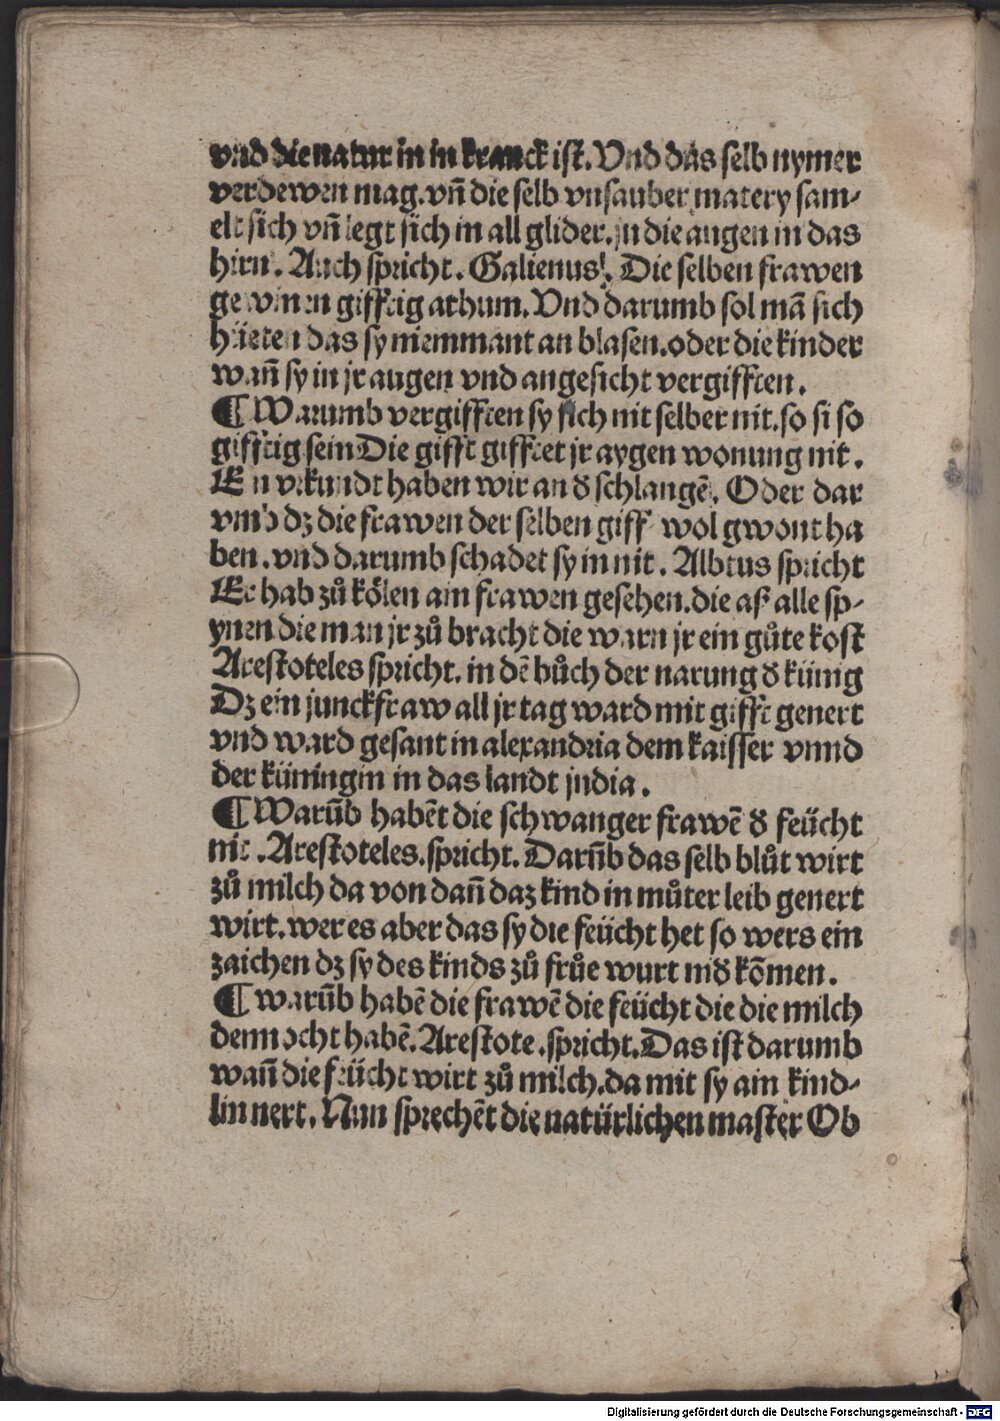 vnd die natur in in kranck ist. Vnd das selb nymer
verdewen mag. vn̄ die selb vnsauber matery sam⸗
elt sich vn̄ legt sich in all glider. jn die augen in das
hirn. Auch spricht. Galienus. Die selben frawen
gewinen gifftig athum. Vnd darumb sol mā sich
hüeten das sy niemmant an blasen. oder die kinder
wan̄ sy in jr augen vnd angesicht vergifften.
¶ Warumb vergifften sy sich nit selber nit. so si so
gifftig sein Die gifft gifftet jr aygen wonung nit.
Ein vrkundt haben wir an ð schlangē. Oder dar
vmb dz die frawen der selben gifft wol gwont ha
ben. vnd darumb schadet sy in nit. Albtus spricht
Er hab zů kölen ain frawen gesehen. die aß alle sp⸗
ynen die man jr zů bracht die warn jr ein gůte kost
Arestoteles spricht. in dē bůch der narung ð künig
Dz ein junckfraw all jr tag ward mit gifft genert
vnd ward gesant in alexandria dem kaisser vnnd
der küningin in das landt jndia.
¶ Warūb habēt die schwanger frawē ð feücht
nit. Arestoteles. spricht. Darūb das selb blůt wirt
zů milch da von dan̄ daz kind in můter leib genert
wirt. wer es aber das sy die feücht het so wers ein
zaichen dz sy des kinds zů frůe wurt nið kōmen.
¶ warūb habē die frawē die feücht die die milch
dennocht habē. Arestote. spricht. Das ist darumb
wan̄ die feücht wirt zů milch. da mit sy ain kind⸗
lin nert. Nun sprechēt die natürlichen master Ob
Digitalisierung gefördert durch die Deutsche Forschungsgemeinschaft - DFG